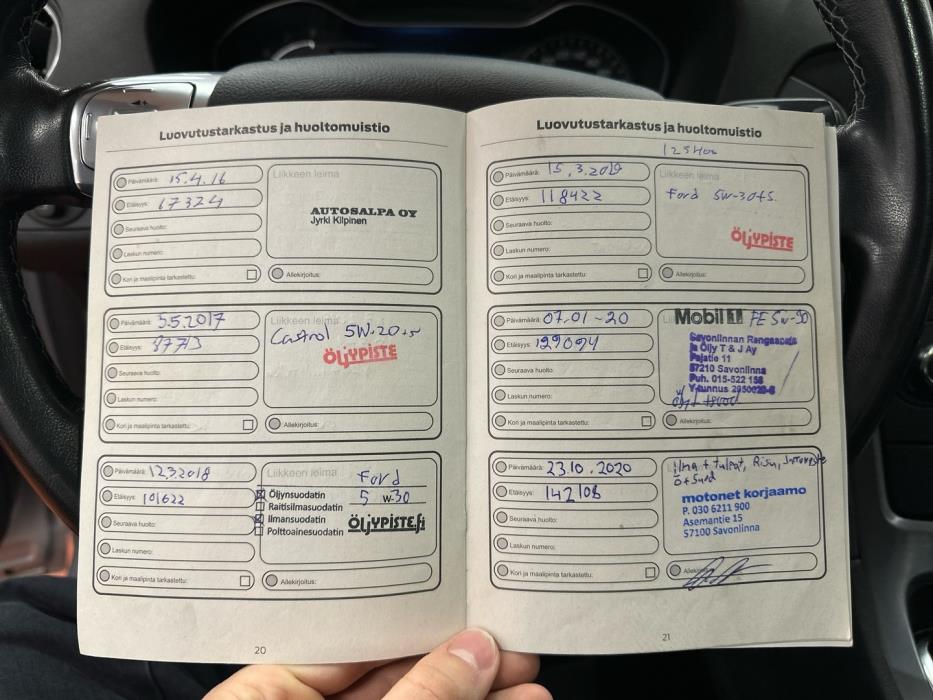 Luovutustarkastus ja huoltomuistio
Päivämäärä: 15.4.16
Etäisyys: 67324
Seuraava huolto:
Laskun numero:
Kori ja maalipinta tarkastettu:
Liikkeen leima
AUTOSALPA OY
Jyrki Kilpinen
Allekirjoitus:
Päivämäärä: 5.5.2017
Etäisyys: 87713
Seuraava huolto:
Laskun numero:
Kori ja maalipinta tarkastettu:
Liikkeen leima
Castrol 5W-20+S
ÖLJYPISTE
Allekirjoitus:
Päivämäärä: 12.3.2018
Etäisyys: 101622
Seuraava huolto:
Laskun numero:
Kori ja maalipinta tarkastettu:
Liikkeen leima
Ford
5 W-30
Öljynsuodatin
Raitisilmasuodatin
Ilmansuodatin
Polttoainesuodatin
ÖLJYPISTE.fi
Allekirjoitus:
20
Luovutustarkastus ja huoltomuistio
Päivämäärä: 15.3.2019
Etäisyys: 118422
Seuraava huolto:
Laskun numero:
Kori ja maalipinta tarkastettu:
Liikkeen leima
Ford 5W-30+S
ÖLJYPISTE
Allekirjoitus:
Päivämäärä: 07.01-20
Etäisyys: 129094
Seuraava huolto:
Laskun numero:
Kori ja maalipinta tarkastettu:
Mobil 1 FE 5W-30
Savonlinnan Rengaspaja
ja Öljy T & J Ay
Pajatie 11
57210 Savonlinna
Puh. 015-522 158
Y-tunnus
Allekirjoitus:
Päivämäärä: 23.10.2020
Etäisyys: 142108
Seuraava huolto:
Laskun numero:
Kori ja maalipinta tarkastettu:
Liikkeen leima
Ö+Suod
motonet korjaamo
P. 030 6211 900
Asemantie 15
57100 Savonlinna
21